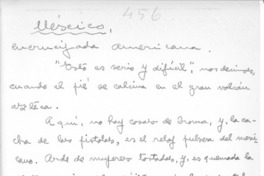 456
México,
encrucijada americana.
"Esto es serio y difícil", nos decimos,
cuando el pié se calcina en el gran volcán
azteca.
Aquí, no hay cosas de broma, y la
cacha de las pistolas, es el reloj pulsera del mexi-
cano. Arde de mujeres tostadas, y, es quemada la